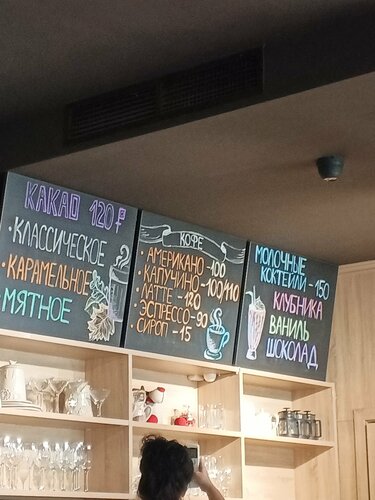 КАКАО 120₽
•КЛАССИЧЕСКОЕ
•КАРАМЕЛЬНОЕ
МЯТНОЕ
КОФЕ
•АМЕРИКАНО-100
•КАПУЧИНО-100/110
•ЛАТТЕ-120
•ЭСПРЕССО-90
•СИРОП-15
МОЛОЧНЫЕ
КОКТЕЙЛИ-150
КЛУБНИКА
ВАНИЛЬ
ШОКОЛАД